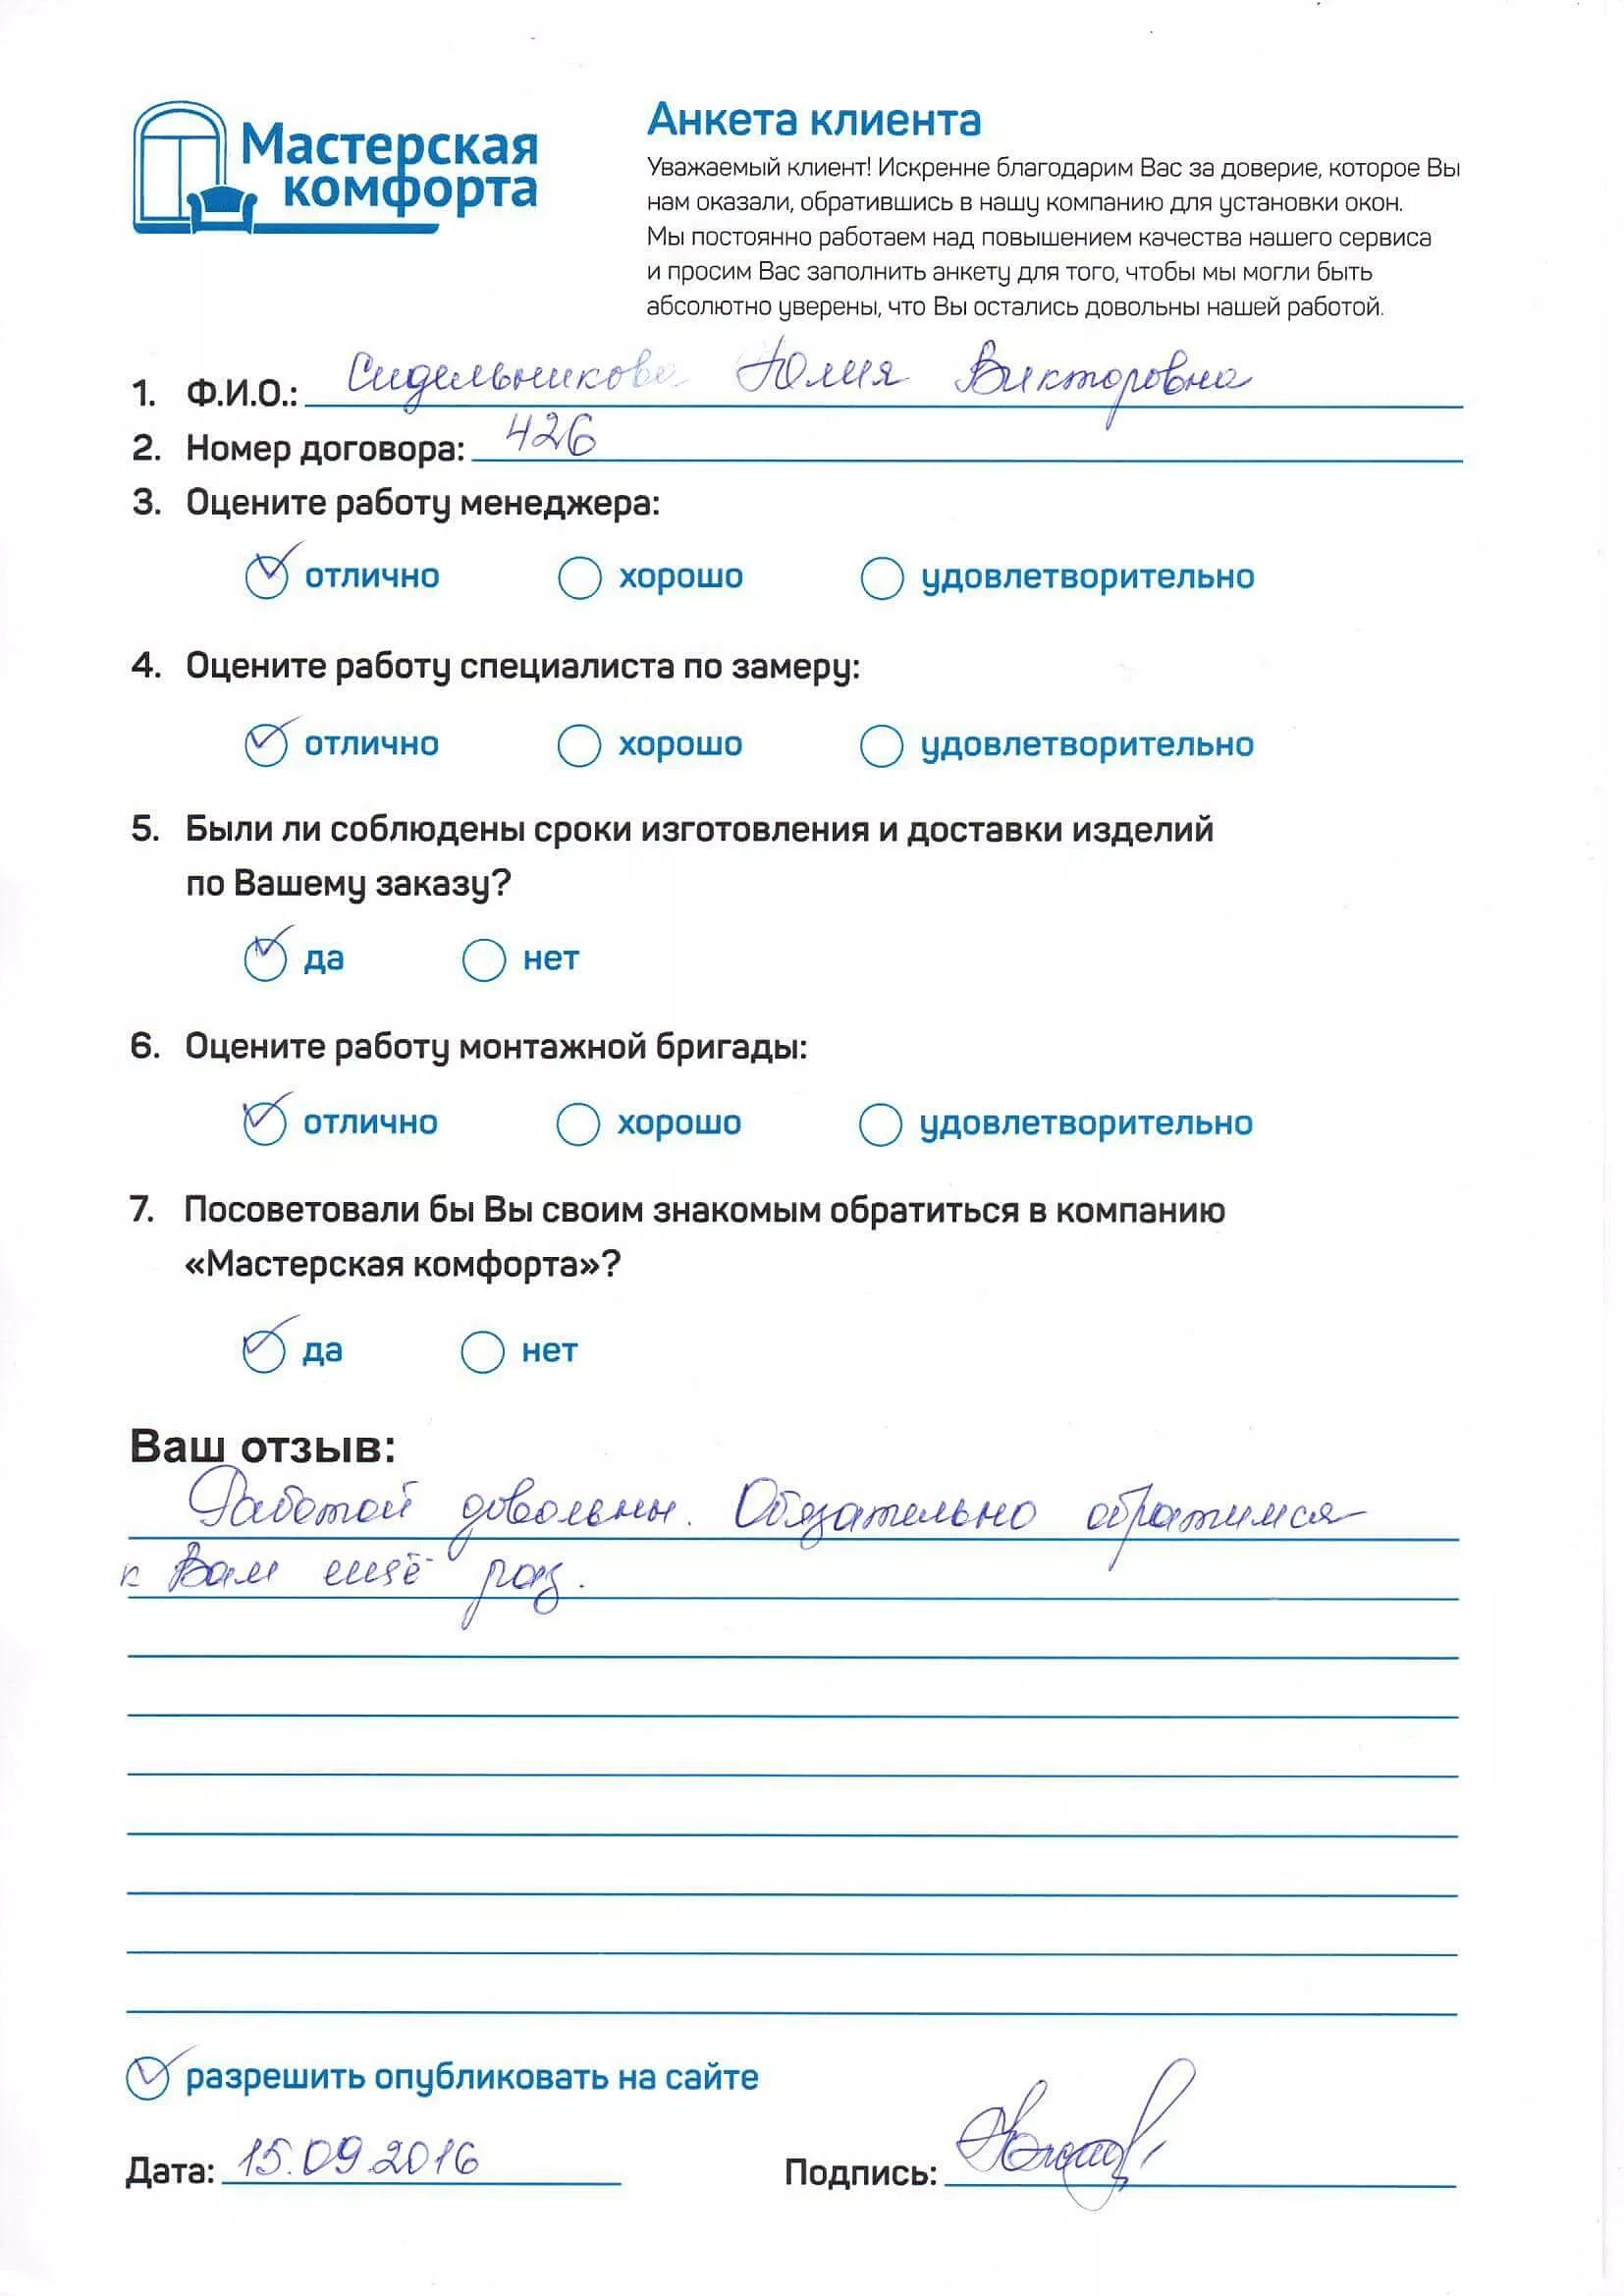 Мастерская
комфорта
Анкета клиента
Уважаемый клиент! Искренне благодарим Вас за доверие, которое Вы
нам оказали, обратившись в нашу компанию для установки окон.
Мы постоянно работаем над повышением качества нашего сервиса
и просим Вас заполнить анкету для того, чтобы мы могли быть
абсолютно уверены, что Вы остались довольны нашей работой.
1. Ф.И.О.: Сидельникова Юлия Викторовна
2. Номер договора: 426
3. Оцените работу менеджера:
отлично хорошо удовлетворительно
4. Оцените работу специалиста по замеру:
отлично хорошо удовлетворительно
5. Были ли соблюдены сроки изготовления и доставки изделий
по Вашему заказу?
да нет
6. Оцените работу монтажной бригады:
отлично хорошо удовлетворительно
7. Посоветовали бы Вы своим знакомым обратиться в компанию
«Мастерская комфорта»?
да нет
Ваш отзыв:
Работой довольны. Обязательно обратимся
к Вам ещё раз.
разрешить опубликовать на сайте
Дата: 15.09.2016 Подпись: